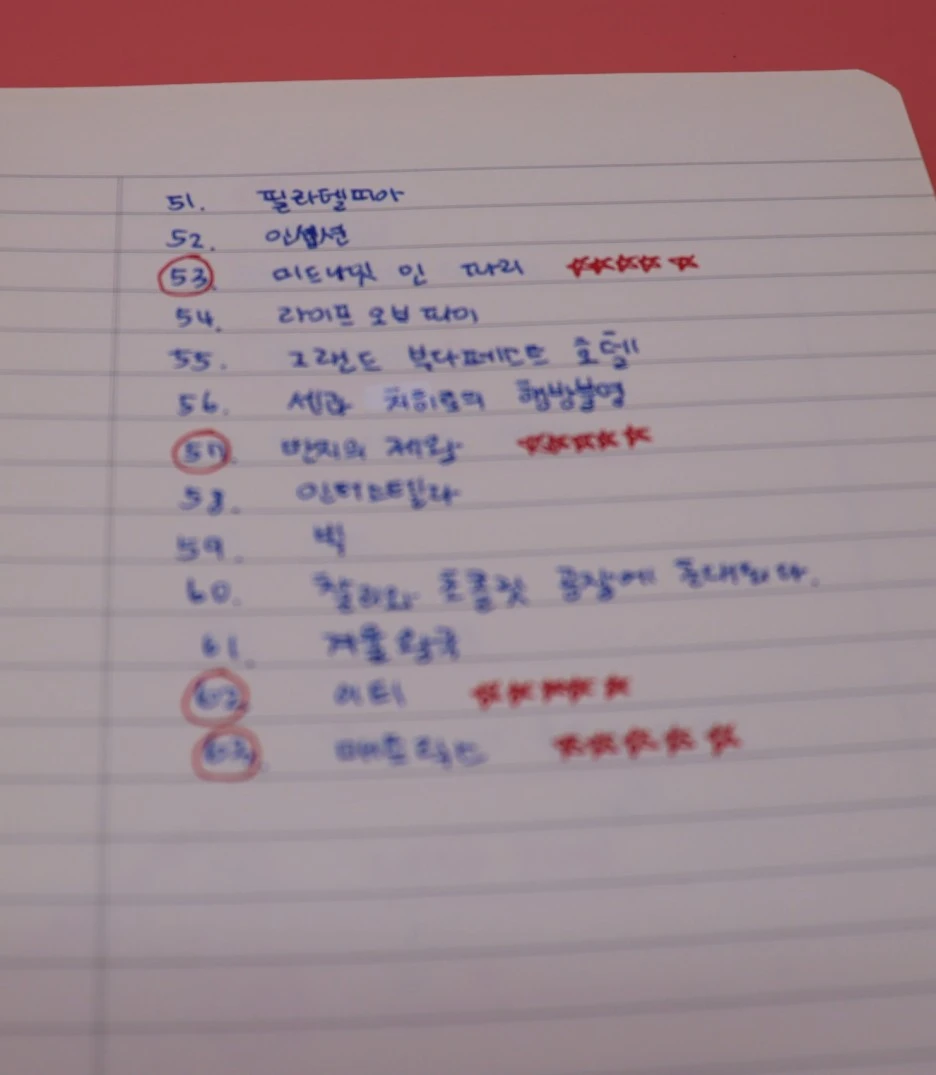 51. 필라델피아
52. 인셉션
53. 미드나잇 인 파리 ☆☆☆☆☆
54. 라이프 오브 파이
55. 그랜드 부다페스트 호텔
56. 센과 치히로의 행방불명
57. 반지의 제왕 ☆☆☆☆☆
58. 인터스텔라
59. 빅
60. 찰리와 초콜릿 공장에
61. 겨울왕국
62. 이티 ☆☆☆☆☆
63. 매트릭스 ☆☆☆☆☆